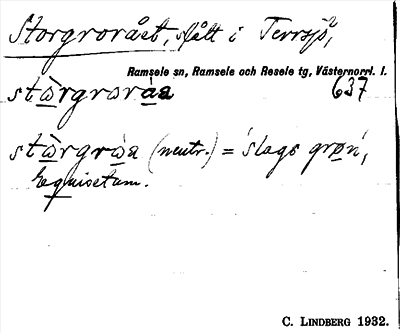 Storgroråset, slått i Terrsjö,
Ramsele sn, Ramsele och Resele tg, Västernorrl. l.
stωrgrωråa 637
stωrgrωa (neutr.) = 'slags grøn',
Equisetum.
C. LINDBERG 1932.